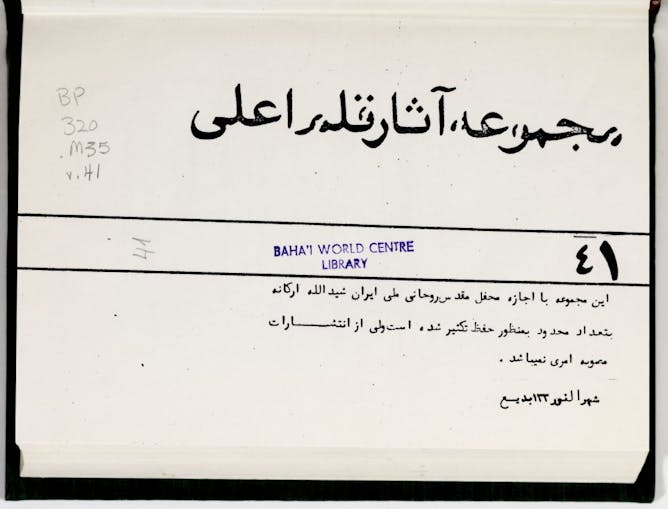 BP
320
.M35
v.41
مجموعه آثار قلم اعلی
41
BAHA'I WORLD CENTRE
LIBRARY
٤١
این مجموعه با اجازه محفل مقدس روحانی ملی ایران شیدالله ارکانه
بتعداد محدود بمنظور حفظ تکثیر شده است ولی از انتشـــارات
مصوبه امری نمیباشد .
شهرالنور ۱۳۳ بدیـع